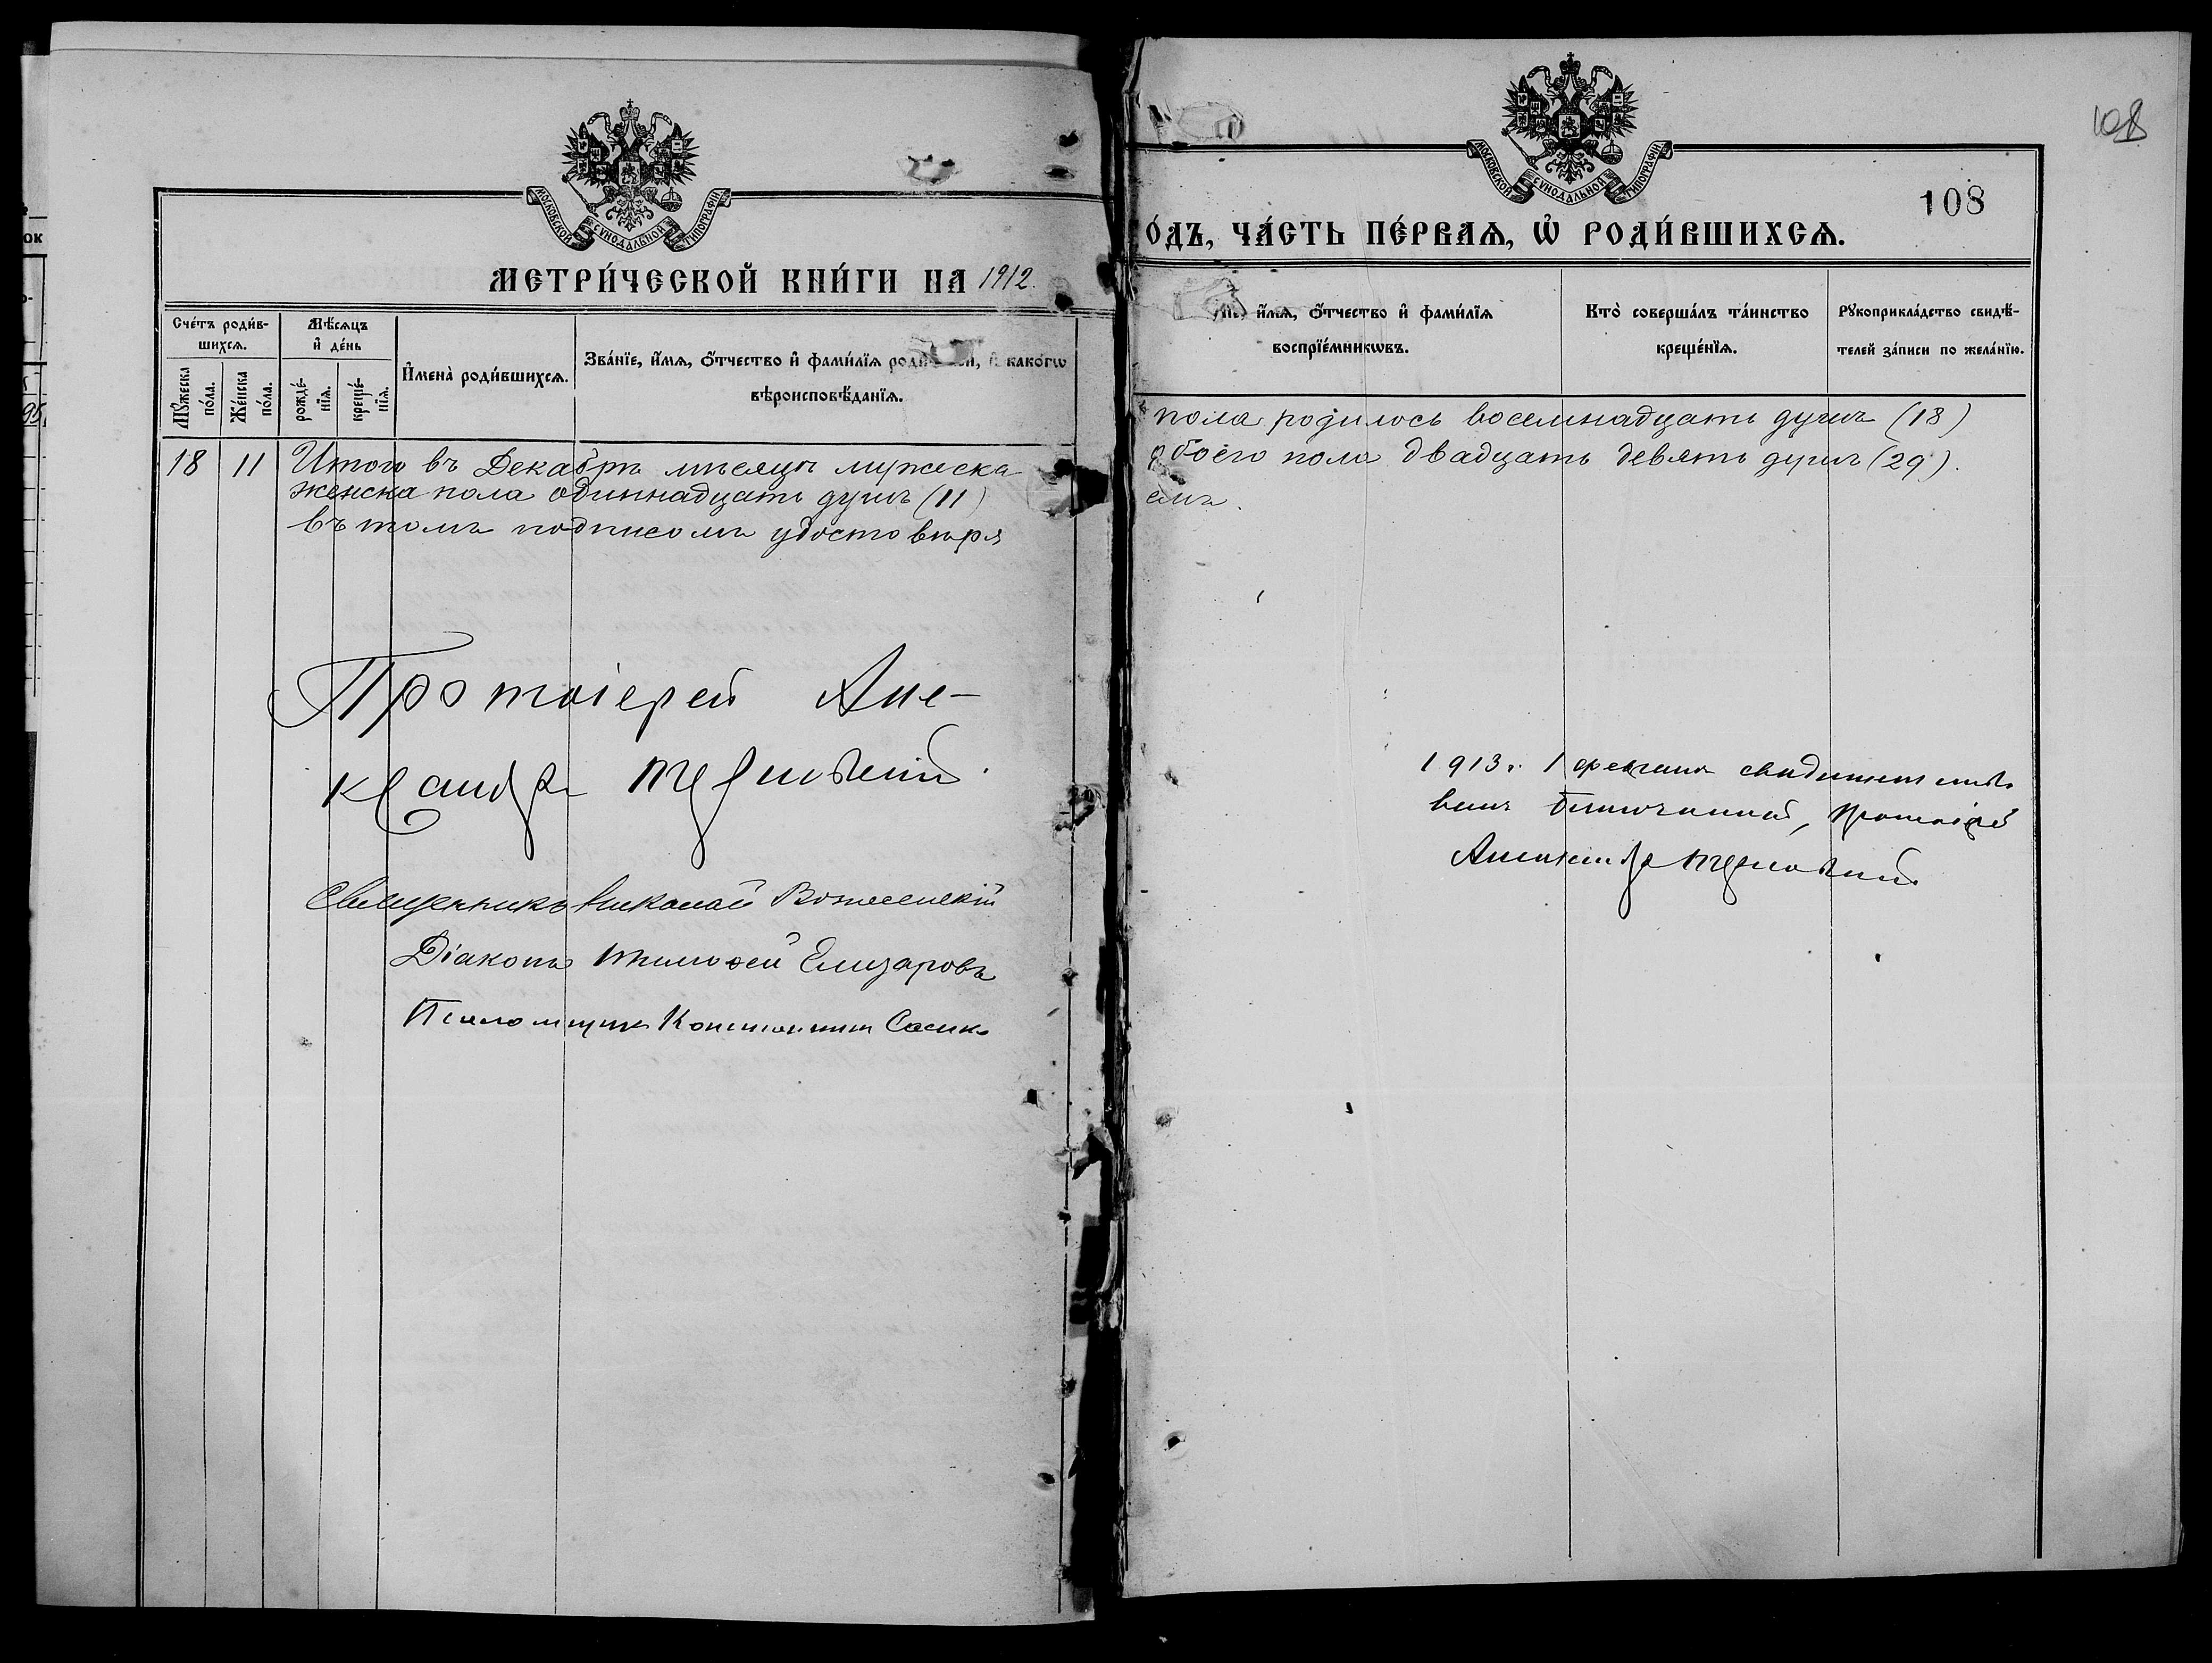 МОСКОВСКОЙ СѴНОДАЛЬНОЙ ТИПОГРАФІИ
МЕТРИ́ЧЕСКОЙ КНИ́ГИ НА 1912
Сче́тъ роди́в-
шихсѧ.
Мѣ́сѧцъ
и҆ де́нь
Мꙋ́жеска
по́ла.
Же́нска
по́ла.
рожде́-
нїѧ.
креще́-
нїѧ.
И҆мена̀ роди́вшихсѧ.
Зва́нїе, и҆́мѧ, ѻ҆́тчество и҆ фами́лїѧ и҆ како́гѡ
вѣроисповѣ́данїѧ.
18 11 Итого въ Декабрѣ мѣсяцѣ мужеска
женска пола одиннадцать душъ (11)
въ томъ подписомъ удостовѣря
Протоіерей Але-
ксандръ
Священникъ Николай Вознесенскій
Діаконъ Тимоѳей Елизаровъ
Псаломщикъ Константинъ
108
МОСКОВСКОЙ СѴНОДАЛЬНОЙ ТИПОГРАФІИ
108
О́ДЪ, ЧА́СТЬ ПЕ́РВАѦ, Ѡ҆ РОДИ́ВШИХСѦ.
и҆́мѧ, ѻ҆́тчество и҆ фами́лїѧ
воспрїе́мникѡвъ.
Кто̀ соверша́лъ та́инство
креще́нїѧ.
Рꙋкоприкла́дство свидѣ́-
телей за́писи по жела́нїю.
пола родилось восемнадцать душъ (18)
обоего пола двадцать девять душъ (29).
емъ.
1913 г. 1 февраля свидѣтельство-
валъ Благочинный, Протоіерей
Александръ